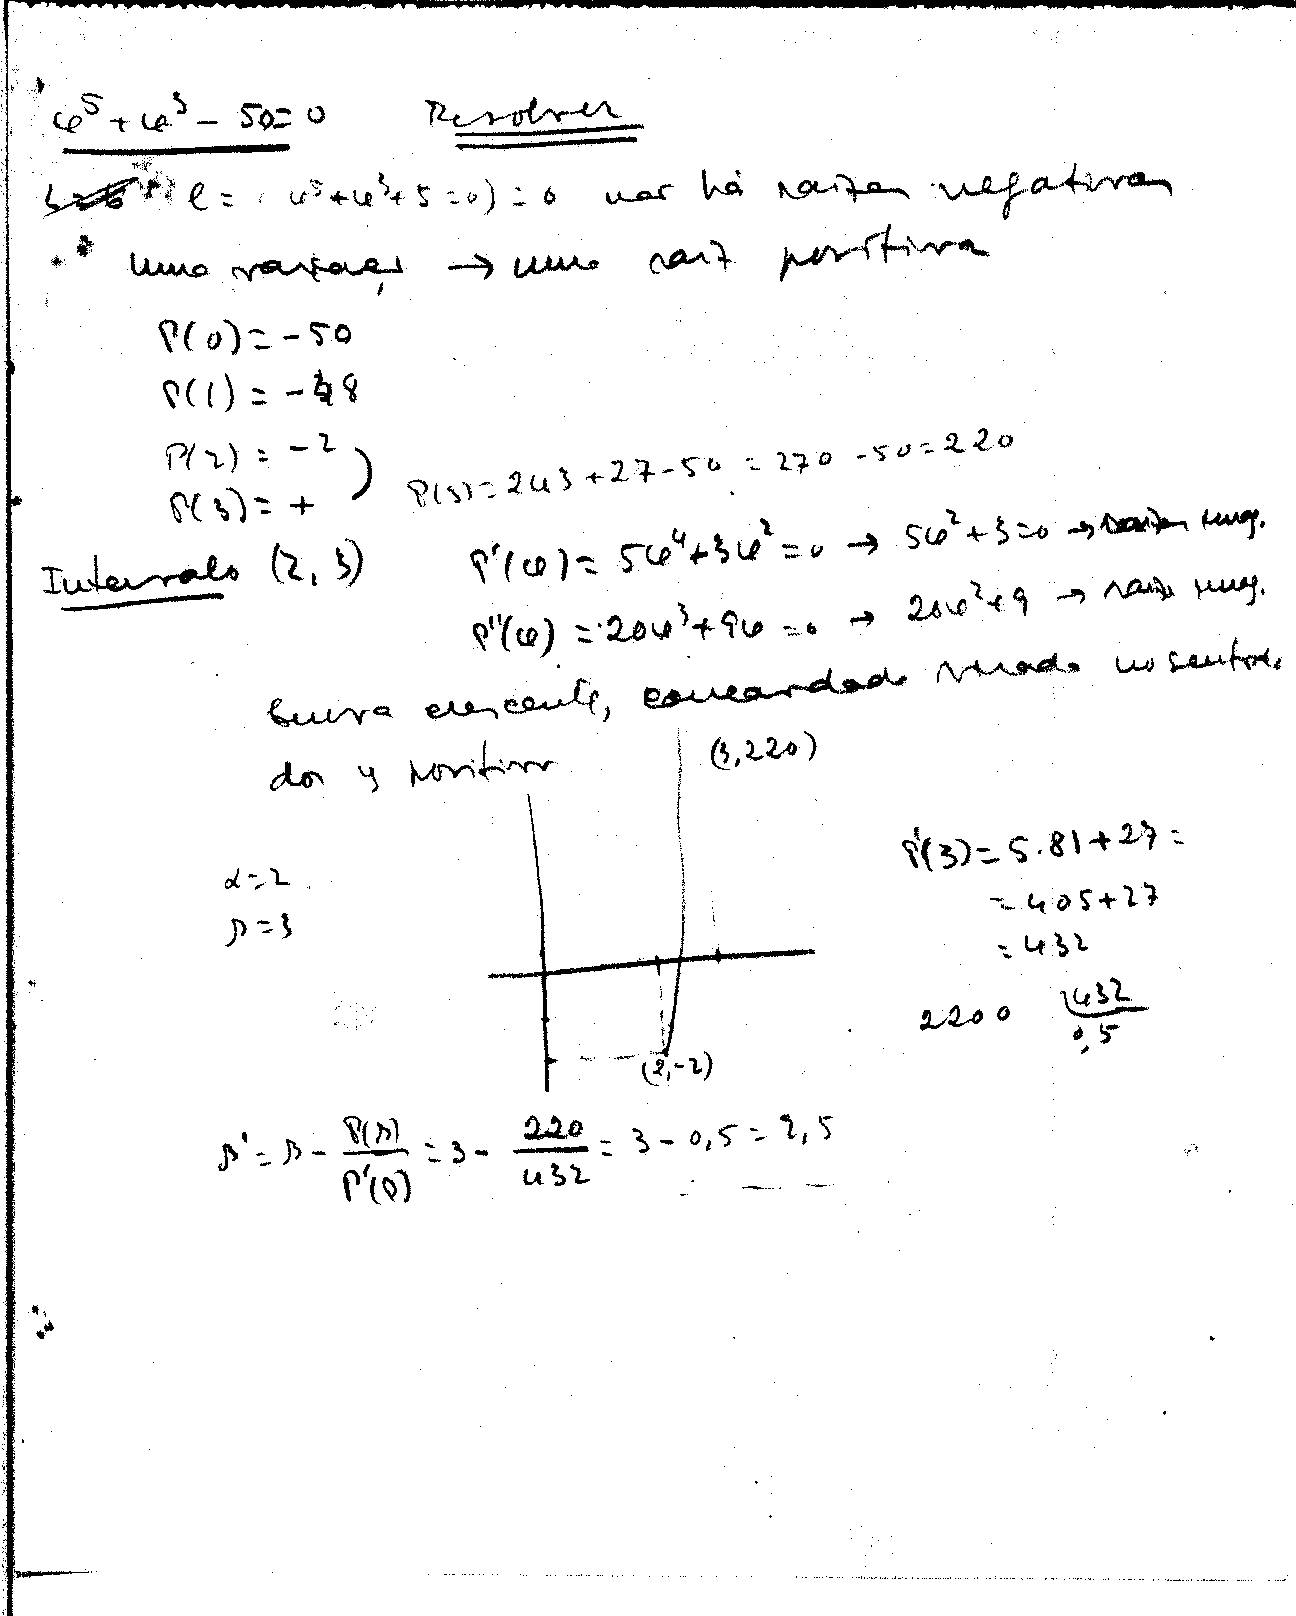 φ⁵ + φ³ - 50 = 0 Resolver
l = φ⁵ + φ³ + 5 = 0) = 0 não há raizes negativas
uma variação → uma raiz positiva
P(0) = - 50
P(1) = - 48
P(2) = - 2
P(3) = + ) P(3) = 243 + 27 - 50 = 270 - 50 = 220
Intervalo (2, 3) P'(φ) = 5φ⁴ + 3φ² = 0 → 5φ² + 3 = 0 → raizes imag.
P''(φ) = 20φ³ + 9φ = 0 → 20φ² + 9 → raizes imag.
Curva crescente, concavidade virada no sentido
dos y positivos
(3, 220)
α = 2
β = 3
P'(3) = 5.81 + 27 =
= 405 + 27
= 432
2200 432
0,5
(2, -2)
β' = β - P(β)/P'(β) = 3 - 220/432 = 3 - 0,5 = 2,5